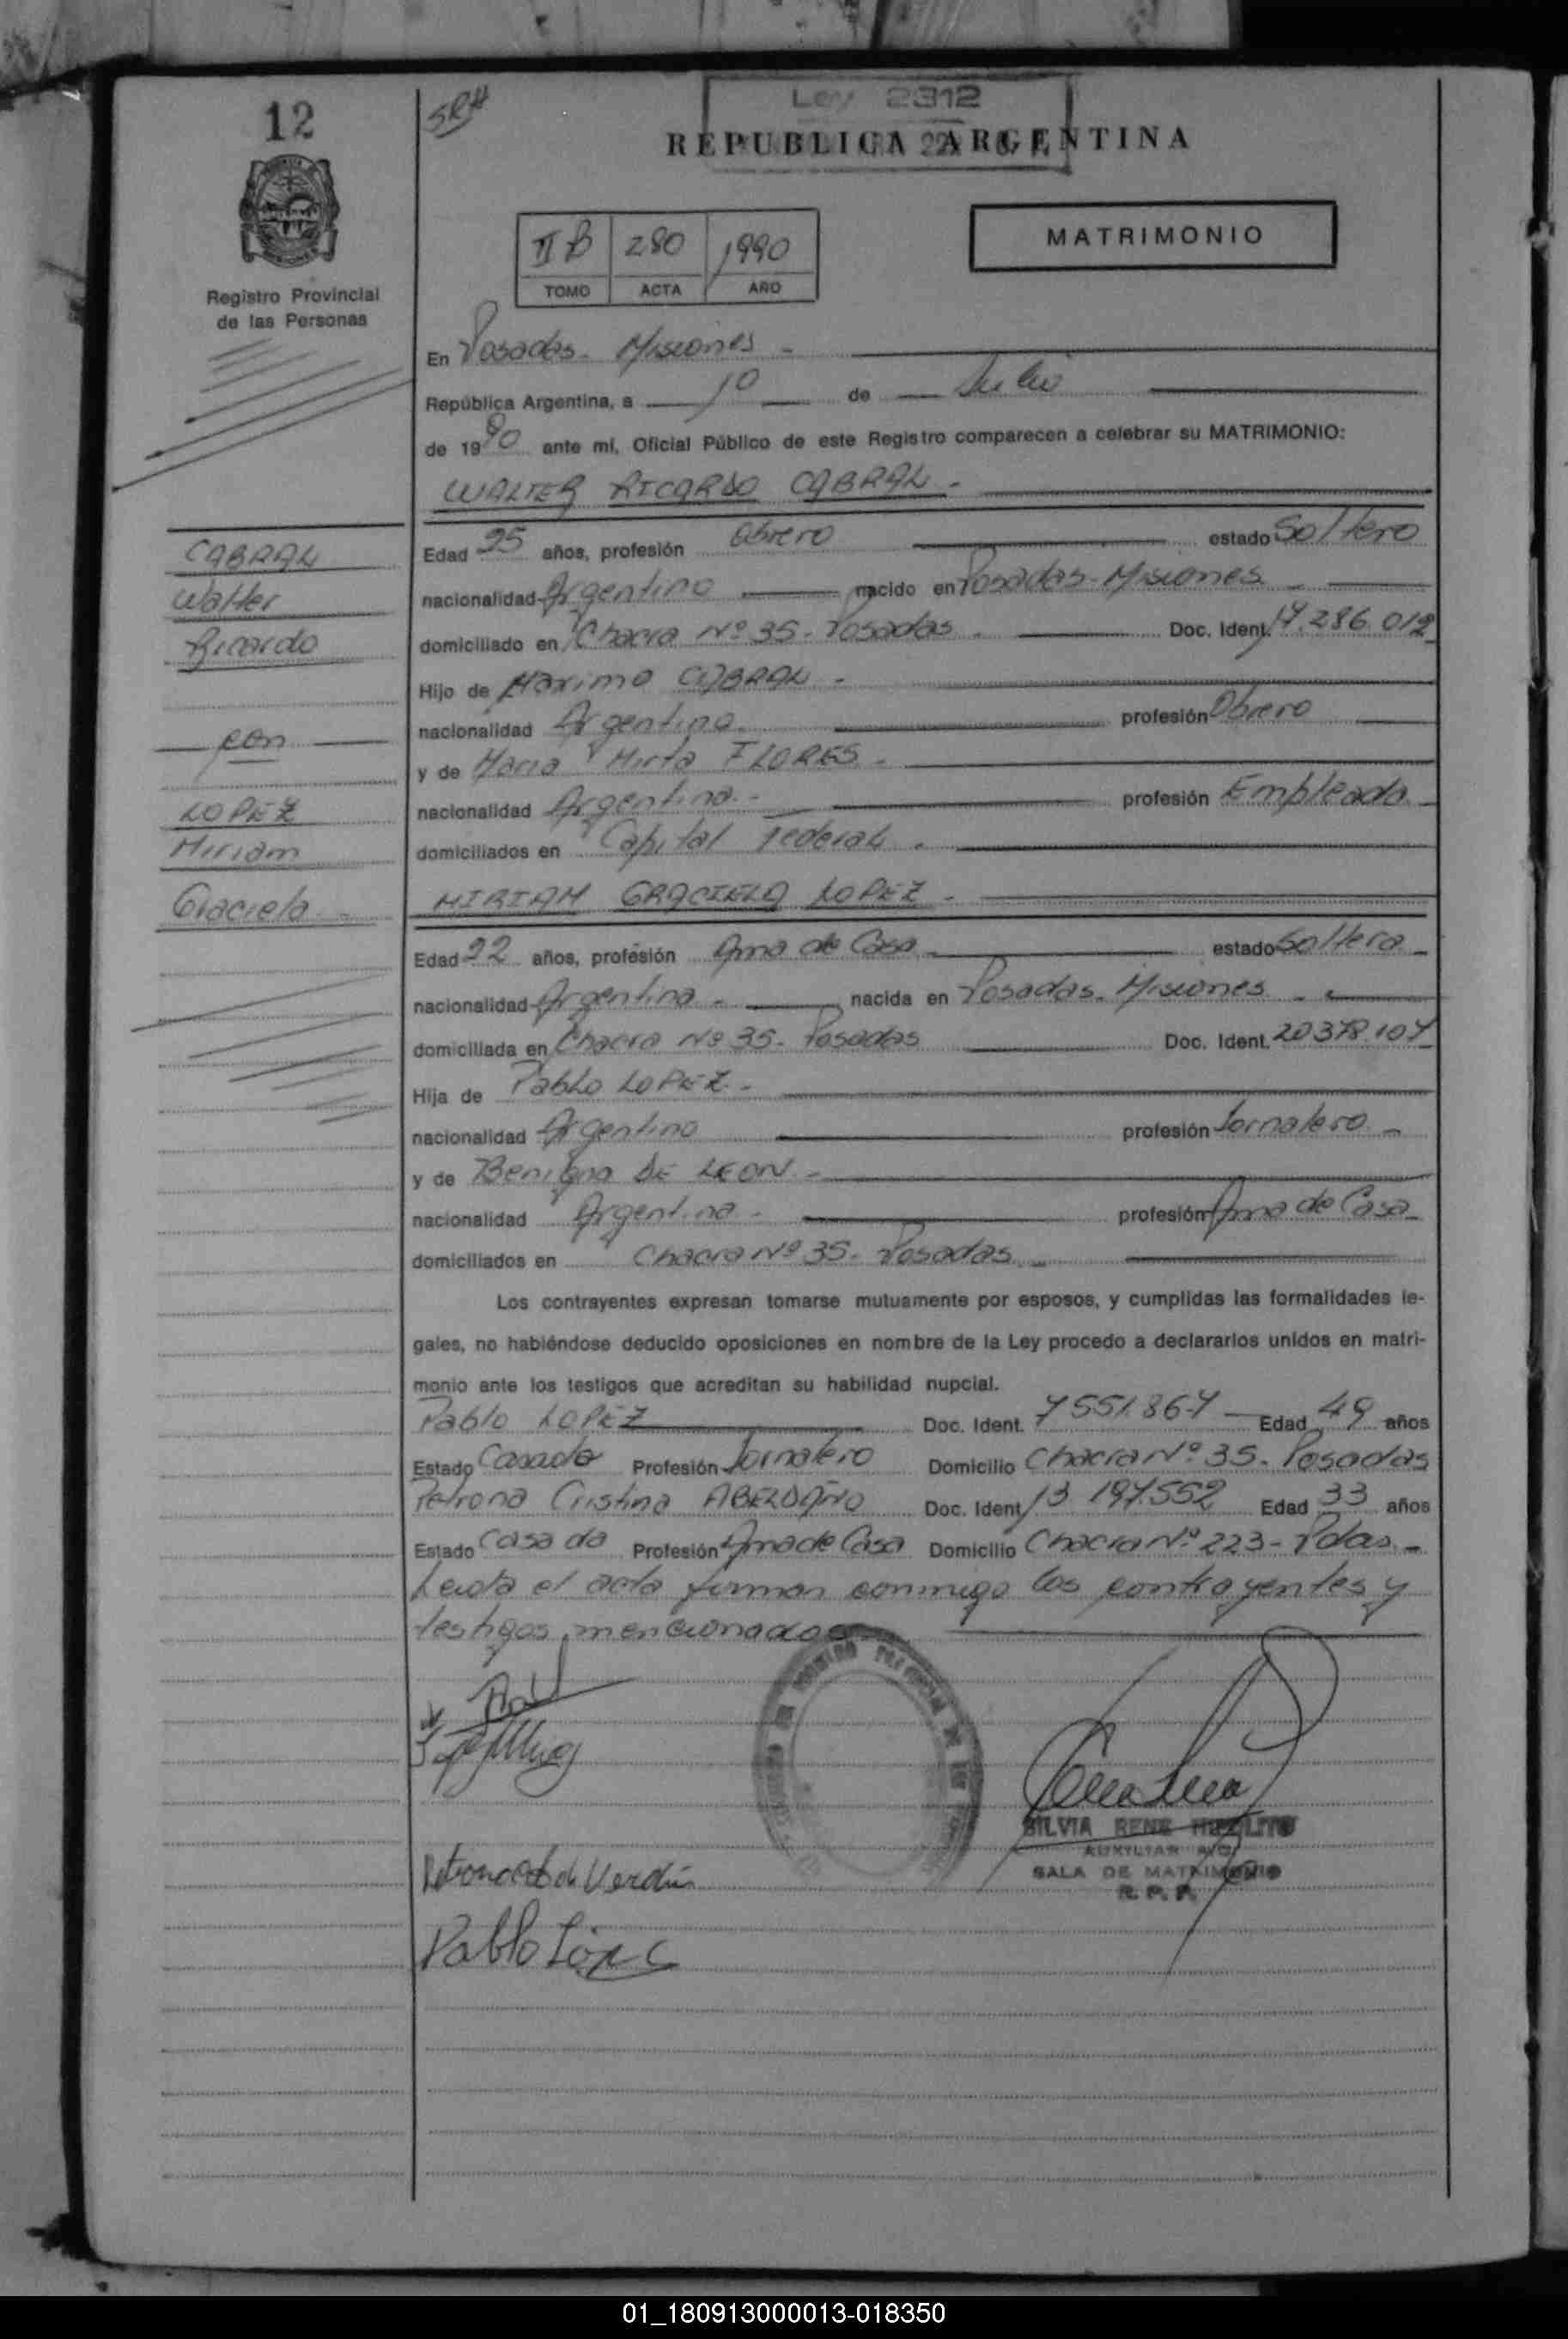 12
SRH
Ley 2312
REPUBLICA ARGENTINA
Registro Provincial
de las Personas
II B 280 1990
TOMO ACTA AÑO
MATRIMONIO
En Posadas - Misiones -
República Argentina, a 10 de Julio
de 1990 ante mí, Oficial Público de este Registro comparecen a celebrar su MATRIMONIO:
WALTER RICARDO CABRAL -
CABRAL
Walter
Ricardo
con
LOPEZ
Miriam
Graciela -
Edad 25 años, profesión Obrero estado Soltero
nacionalidad Argentina nacido en Posadas - Misiones
domiciliado en Chacra Nº 35 - Posadas - Doc. Ident. 17.286.012
Hijo de Maximo CABRAL -
nacionalidad Argentina - profesión Obrero
y de Maria Mirta FLORES -
nacionalidad Argentina - profesión Empleada
domiciliados en Capital Federal -
MIRIAM GRACIELA LOPEZ -
Edad 22 años, profesión Ama de Casa estado Soltera
nacionalidad Argentina - nacida en Posadas - Misiones -
domiciliada en Chacra Nº 35 - Posadas Doc. Ident. 20.378.107
Hija de Pablo LOPEZ -
nacionalidad Argentina profesión Jornalero -
y de Benigna DE LEON -
nacionalidad Argentina - profesión Ama de Casa
domiciliados en Chacra Nº 35 - Posadas -
Los contrayentes expresan tomarse mutuamente por esposos, y cumplidas las formalidades le-
gales, no habiéndose deducido oposiciones en nombre de la Ley procedo a declararlos unidos en matri-
monio ante los testigos que acreditan su habilidad nupcial.
Pablo LOPEZ Doc. Ident. 7.551.867 Edad 49 años
Estado Casado Profesión Jornalero Domicilio Chacra Nº 35 - Posadas
Petrona Cristina Doc. Ident. 13.197.552 Edad 33 años
Estado Casada Profesión Ama de Casa Domicilio Chacra Nº 223 - Pdas -
Leida el acta firman conmigo los contrayentes y
testigos mencionados
SILVIA RENE HIPOLITO
AUXILIAR A/C
SALA DE MATRIMONIO
R. P. P.
Verdún
Pablo López
01_180913000013-018350